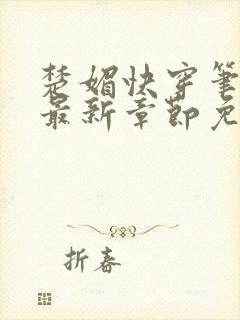 楚媚快穿笔
最新章节免
折春